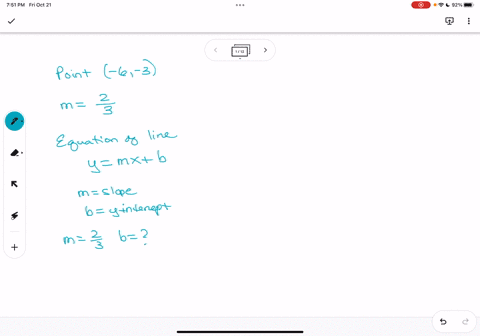 7:51 PM Fri Oct 21
92%
1 / 12
Point (-6,-3)
m = 2/3
Equation of line
y = mx + b
m = slope
b = y-intercept
m = 2/3 b = ?